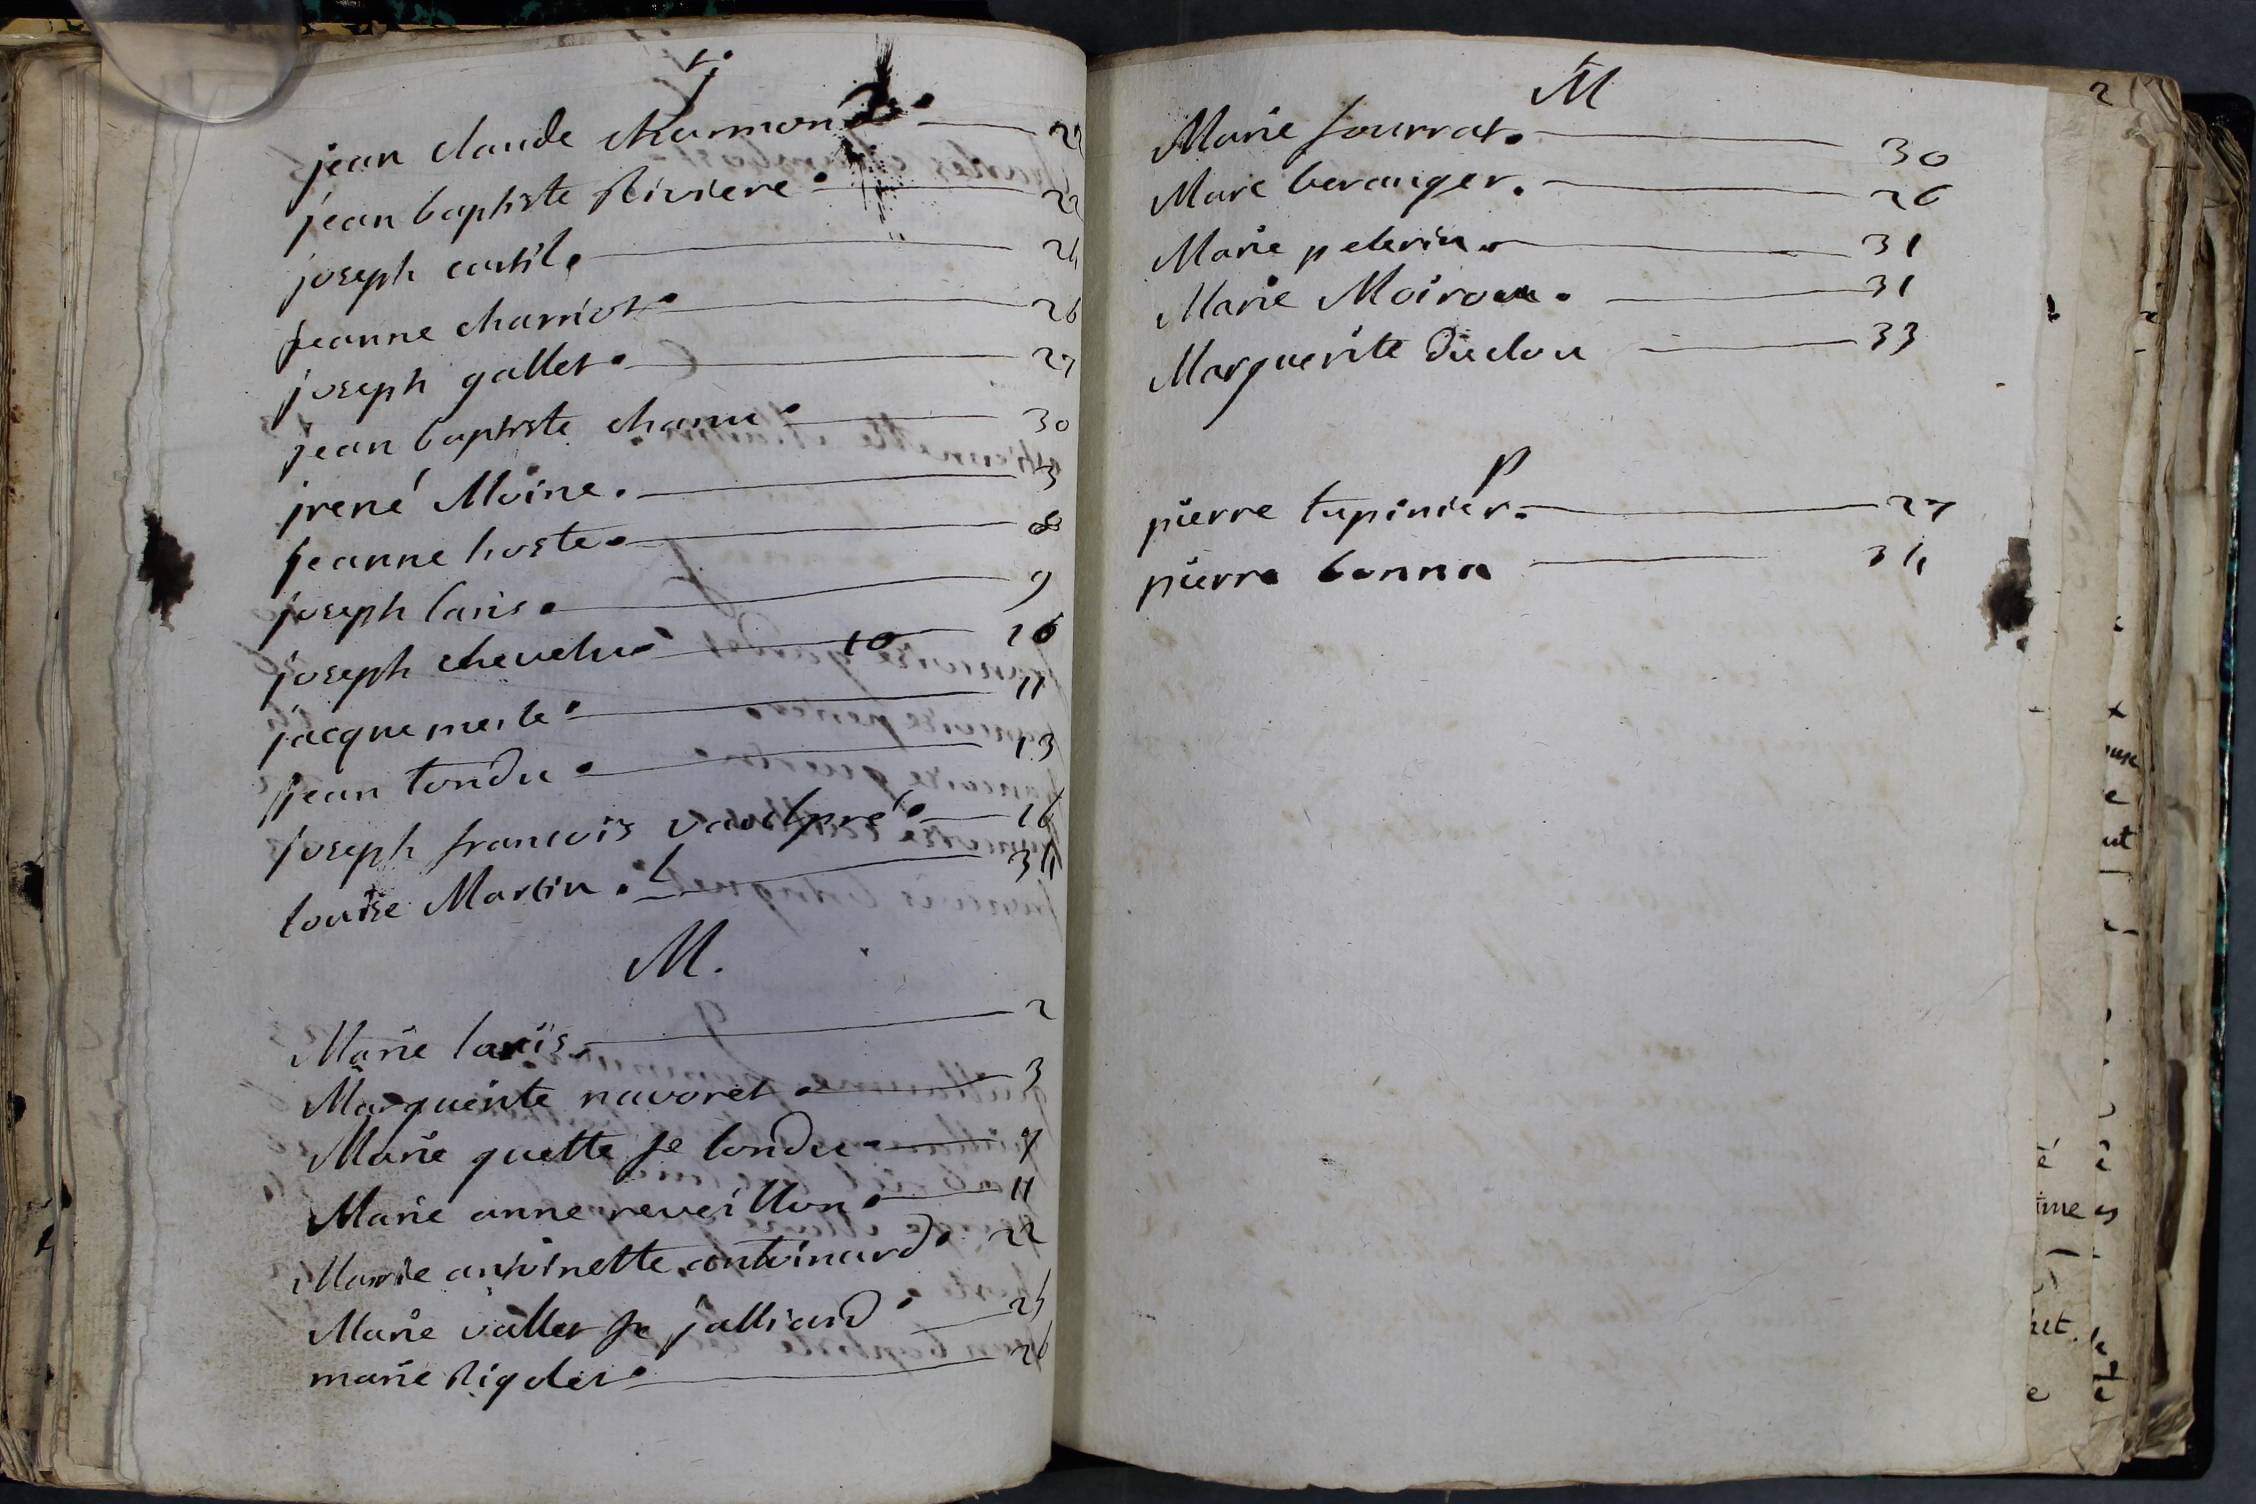 j
jean claude charmond 22
jean baptiste Riviere 22
joseph cartil 24
jeanne charriot 26
joseph gallet 27
jean baptiste chanu 30
jrené Moine 3
jeanne hoste 8
joseph laris 9
joseph chevelu 10 10
jacque merle 11
jean tondu 13
joseph francois vaulpré 16
L
louise Martin 34
M.
Marie laris 2
Marguerite navoret 3
Marie guette fe tondu 7
Marie anne reveillon 11
Marie antoinette antoinard 22
Marie vallet fe jalliard 25
marie Rigolet 26
M
Marie fourrat 30
Marc beranger 26
Marie pelerin 31
Marie Moirou 31
Marguerite Duclou 33
p
pierre tupinier 27
pierre bonna 34
2